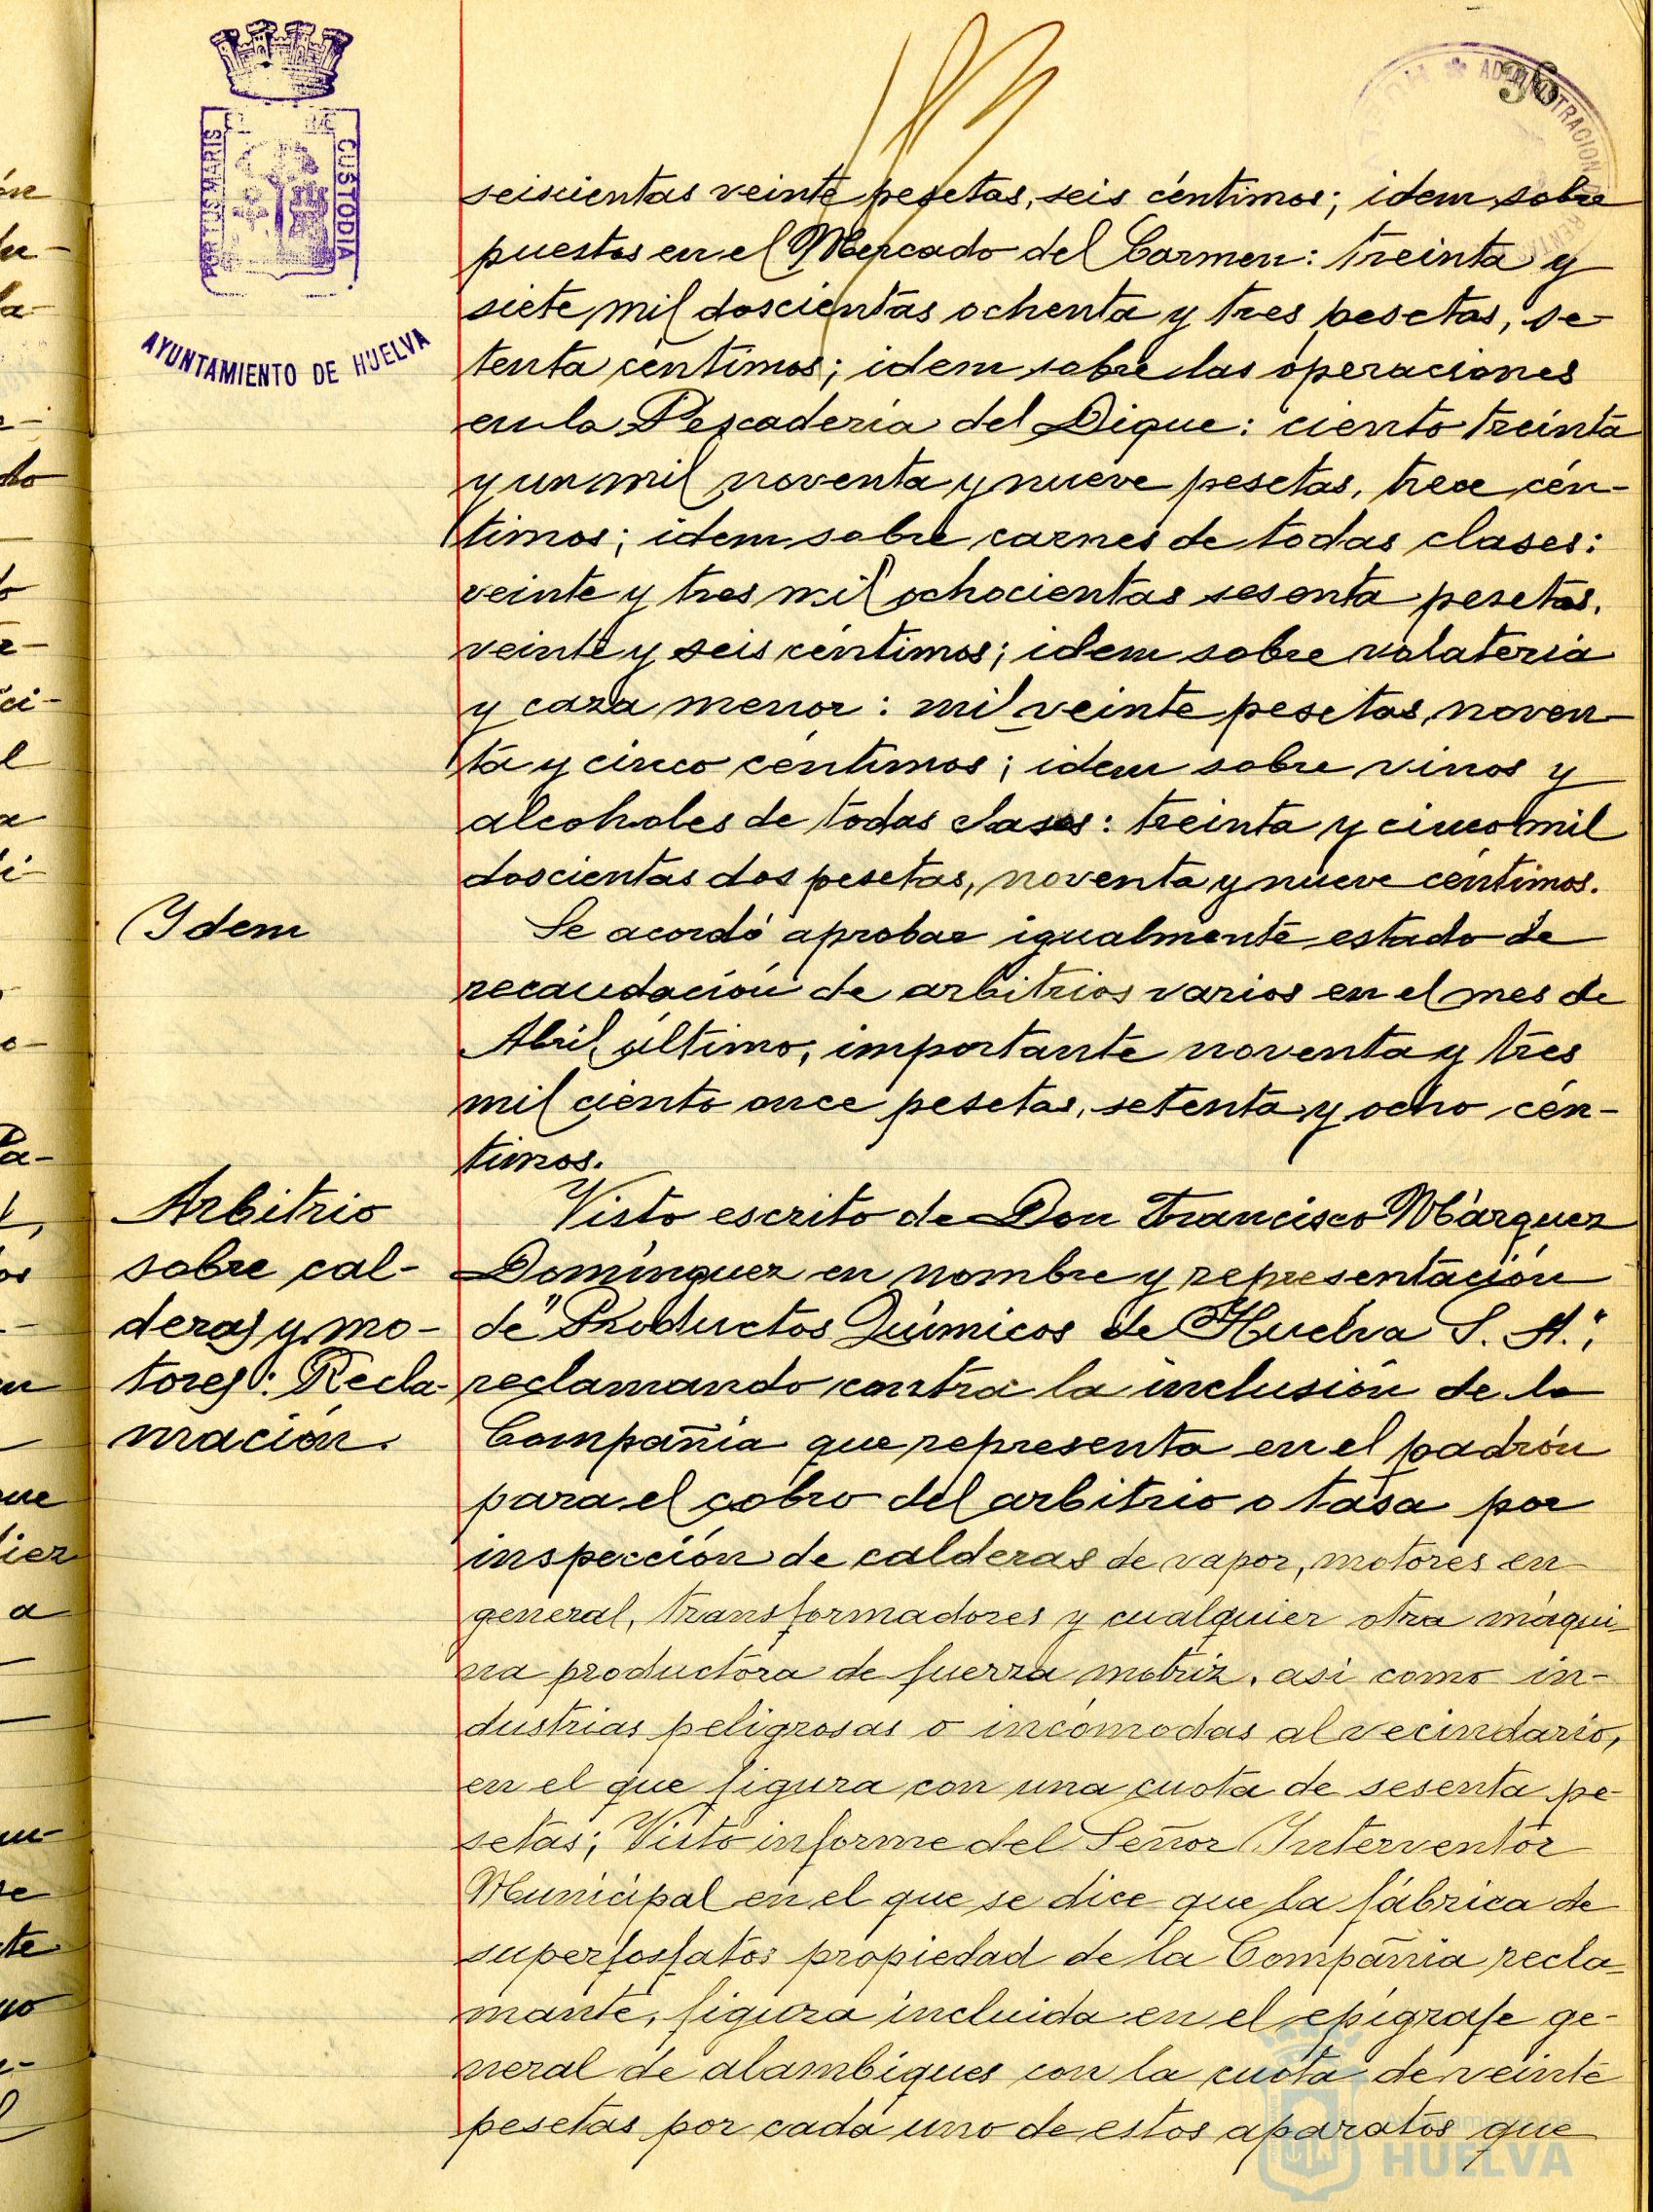 36
PORTUS MARIS
CUSTODIA
AYUNTAMIENTO DE HUELVA
ADMINISTRACION DE RENTAS
seiscientas veinte pesetas, seis céntimos; idem sobre
puestos en el Mercado del Carmen: treinta y
siete mil doscientas ochenta y tres pesetas, se-
tenta céntimos; idem sobre las operaciones
en la Pescadería del Dique: ciento treinta
y un mil noventa y nueve pesetas, trece cén-
timos; idem sobre carnes de todas clases:
veinte y tres mil ochocientas sesenta pesetas,
veinte y seis céntimos; idem sobre volatería
y caza menor: mil veinte pesetas, noven-
ta y cinco céntimos; idem sobre vinos y
alcoholes de todas clases: treinta y cinco mil
doscientas dos pesetas, noventa y nueve céntimos.
Ydem
Se acordó aprobar igualmente estado de
recaudación de arbitrios varios en el mes de
Abril último, importante noventa y tres
mil ciento once pesetas, setenta y ocho cén-
timos.
Arbitrio
sobre cal-
deras y mo-
tores: Recla-
mación.
Visto escrito de Don Francisco Márquez
Domínguez en nombre y representación
de "Productos Químicos de Huelva S. A.",
reclamando contra la inclusión de la
Compañía que representa en el padrón
para el cobro del arbitrio o tasa por
inspección de calderas de vapor, motores en
general, transformadores y cualquier otra máqui-
na productora de fuerza motriz, asi como in-
dustrias peligrosas o incómodas al vecindario,
en el que figura con una cuota de sesenta pe-
setas; Visto informe del Señor Interventor
Municipal en el que se dice que la fábrica de
superfosfatos propiedad de la Compañía recla-
mante, figura incluida en el epígrafe ge-
neral de alambiques con la cuota de veinte
pesetas por cada uno de estos aparatos que
Ayuntamiento de
HUELVA